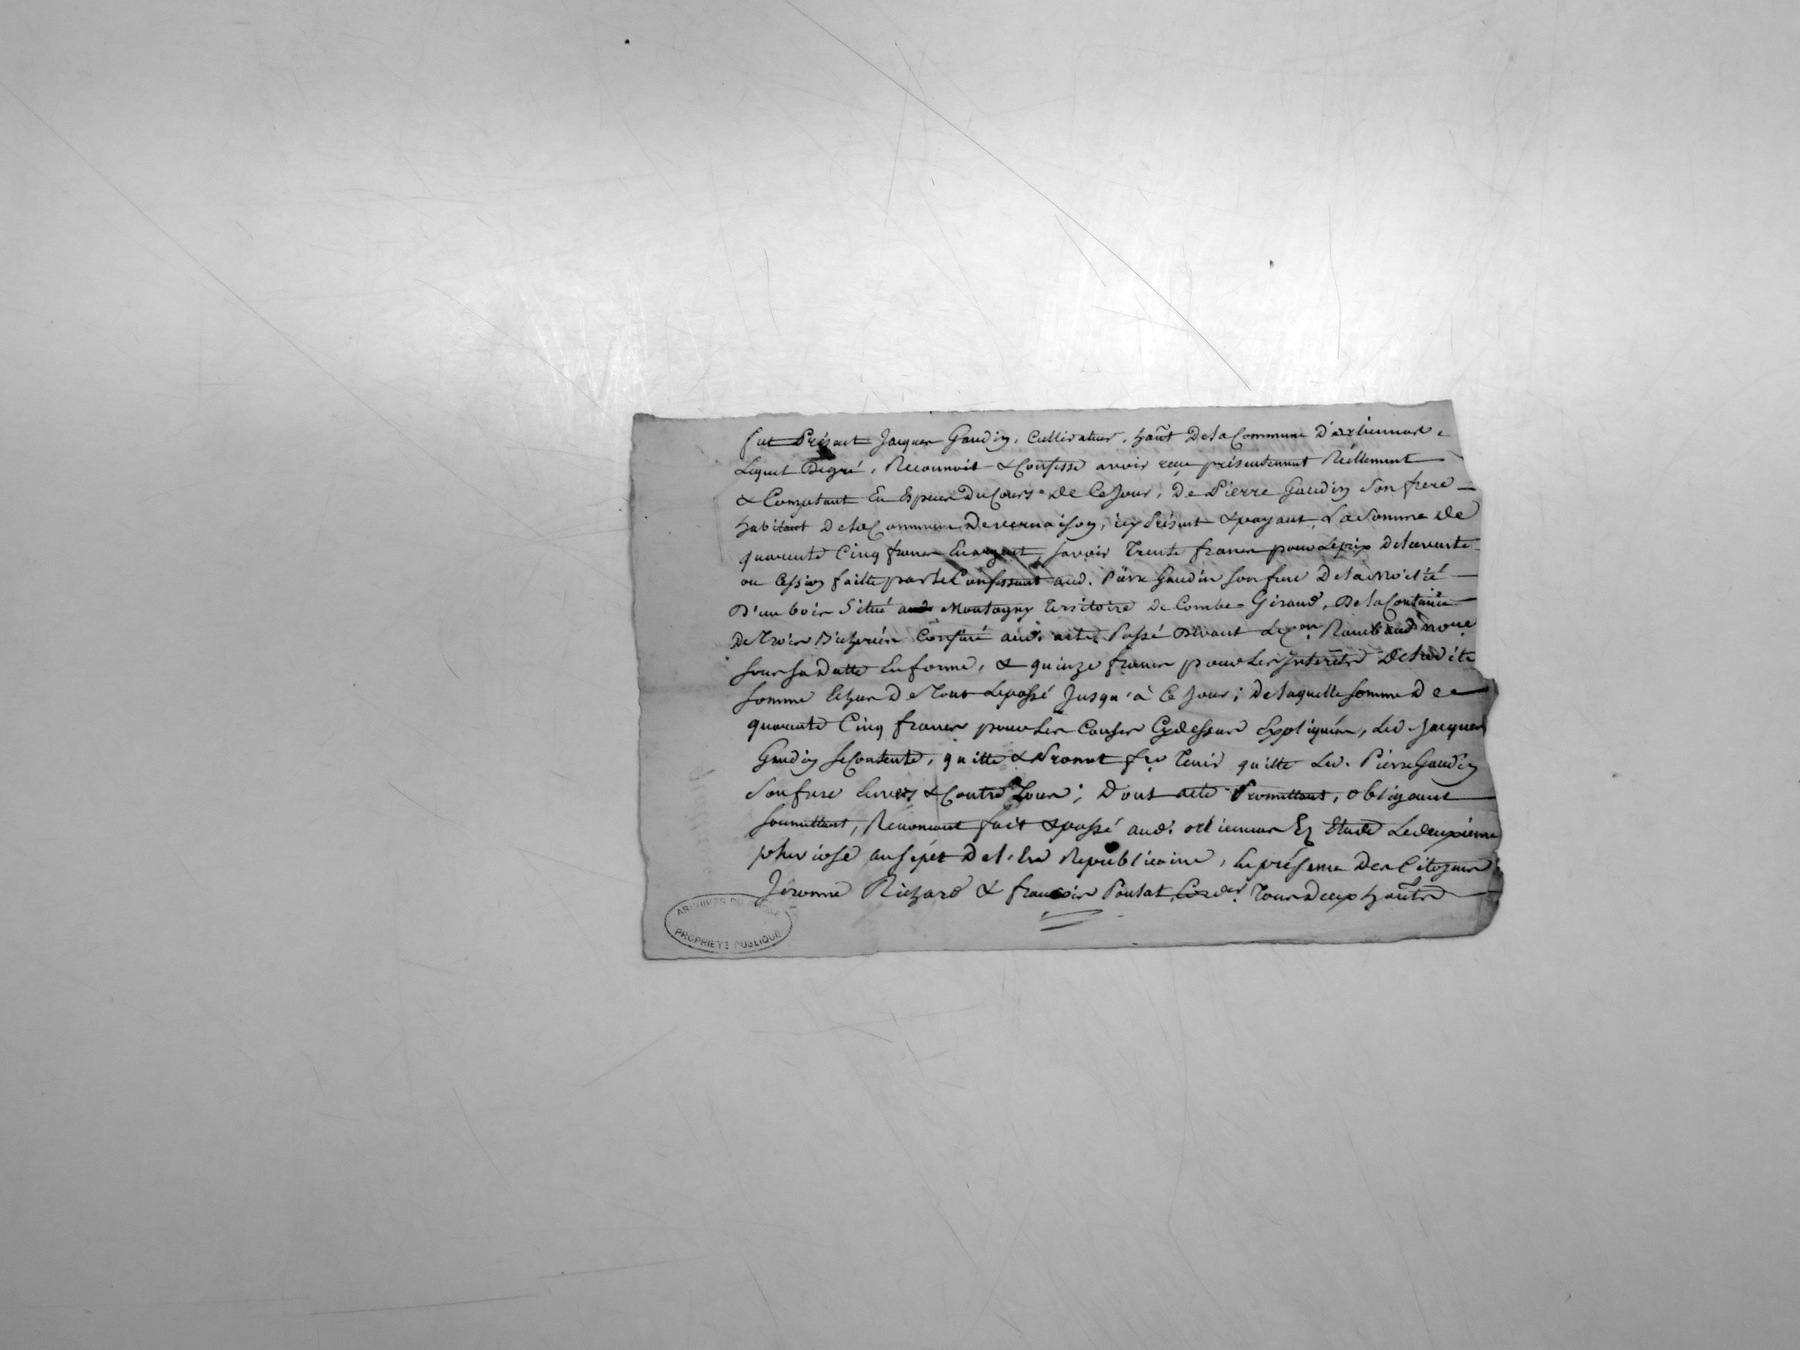 fut Présent Jacques Gaudin, Cultivateur, hant De la Commune D'orliennas,
Lequel De gré, Reconnoit & Confesse avoir reçu présentement Réellement
& Comptant En Espèces Du Cours De Ce Jour, De Pierre Gaudin Son frere
habitant De la Commune De vernaison, icy Présent & payant, La Somme De
quarente Cinq francs En argent, savoir Trente francs pour Le prix De la vente
ou Cession faitte par le Confessant aud. Pierre Gaudin Son frere De la moitié
D'un bois Situé Montagny Territoire De Combe Giraud, De la Contenüe
De Trois Bicherées Confiné aud. acte Passé Devant Raimbaud no.re
sous sa Datte En forme, & quinze francs pour Les Interêts De ladite
somme Echus De Tout Le passé Jusqu'à Ce Jour; De laquelle somme De
quarente Cinq francs pour Les Causes Cy dessus Expliquées, Led. Jacques
Gaudin Se Contente, quitte & Promet fre Tenir quitte Led. Pierre Gaudin
Son frere Envers & Contre Tous; Dont acte Promettant, obligeant
soumettant, Renonçant fait & passé aud. orliennas En Etude Le deuxième
pluviose an sept De l'Ere Republicaine, En présence Des Citoyens
Jérome Richard & françois Poulat, Cord.er Tous Deux hants
ARCHIVES DU RHÔNE
PROPRIÉTÉ PUBLIQUE